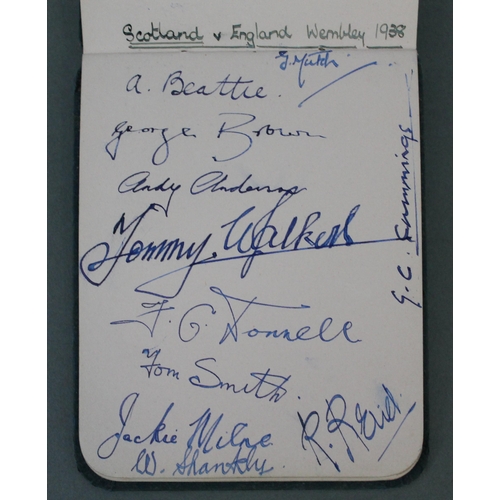 Scotland v England Wembley 1938
G. Mutch
A. Beattie.
George Brown
Andy Anderson
Tommy. Walker
G. C. Cummings
F. O. Donnell
Tom Smith.
Jackie Milne
W. Shankly.
R. Reid.